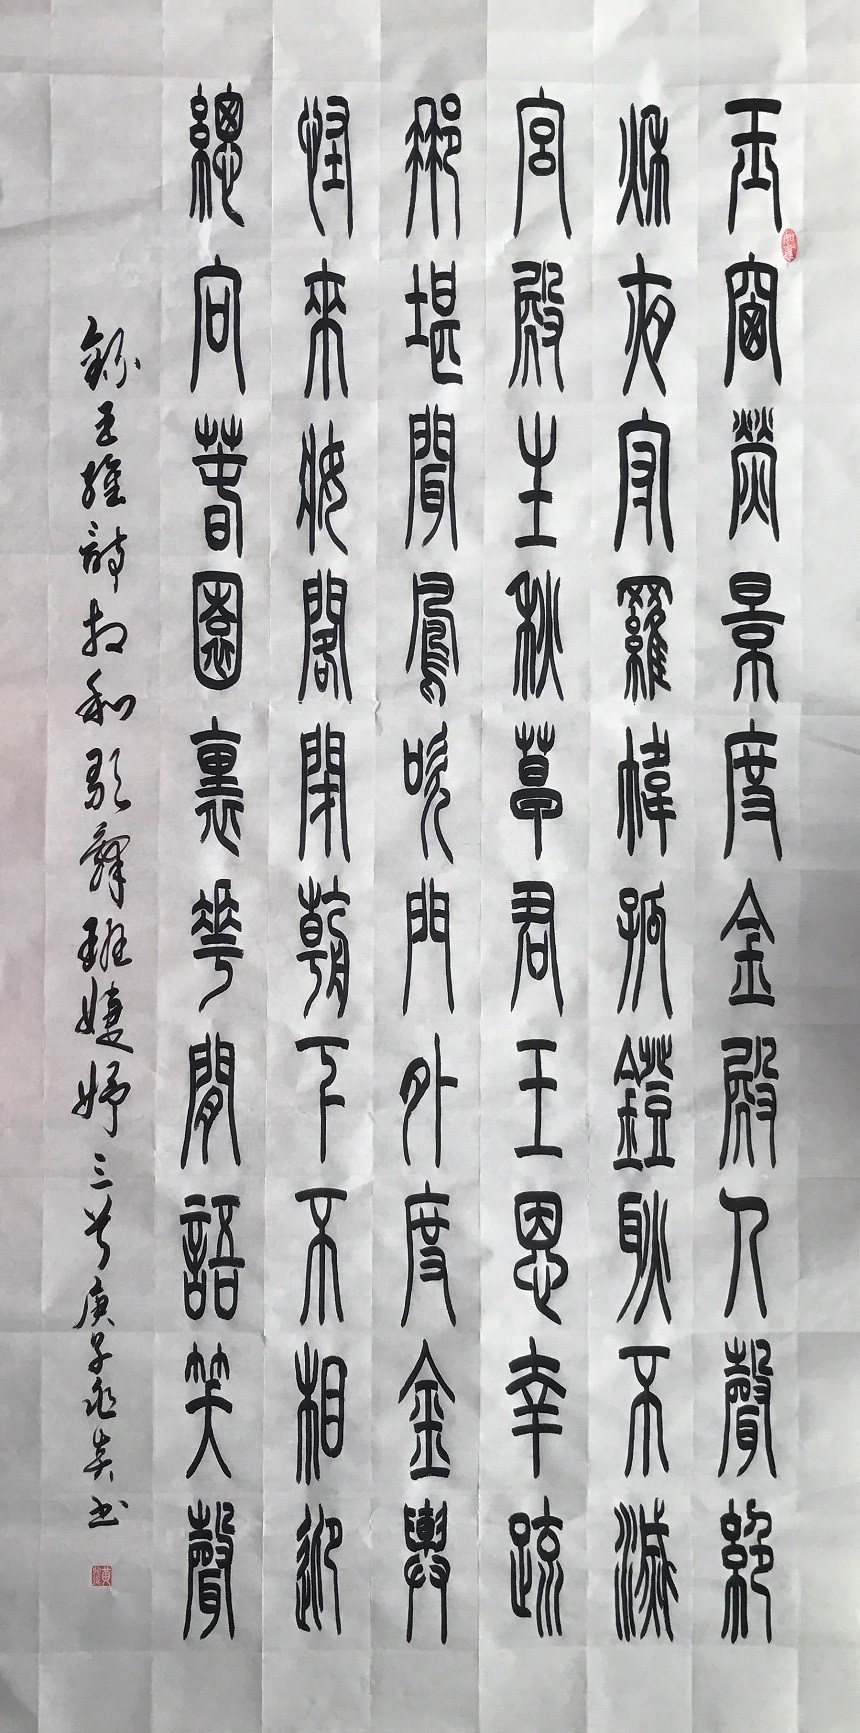 玉窗熒景度金殿人聲絕
秌夜守羅幃孤鐙耿不滅
宮殿生秋草君王恩幸疏
那堪聞鳳吹門外度金輿
怪來妝閣閉朝下不相迎
總向春園裏花間語笑聲
錄王維詩相和歌辭班婕妤三首庚子永奕書